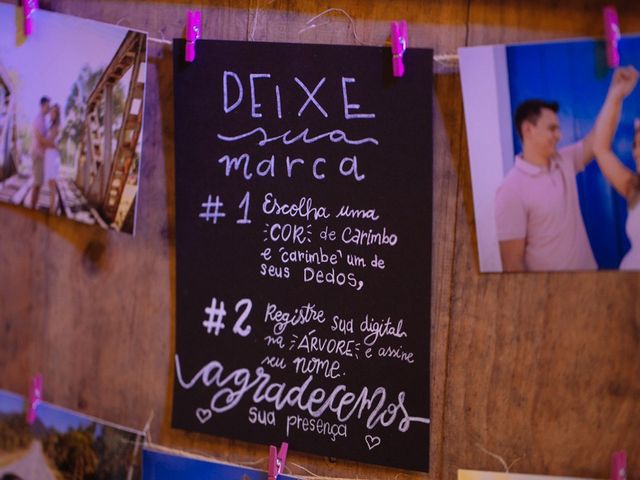 DEIXE
sua
marca
#1 Escolha uma
COR de Carimbo
e "carimbe" um de
seus Dedos,
#2 Registre sua digital
na ÁRVORE e assine
seu nome.
agradecemos
sua presença